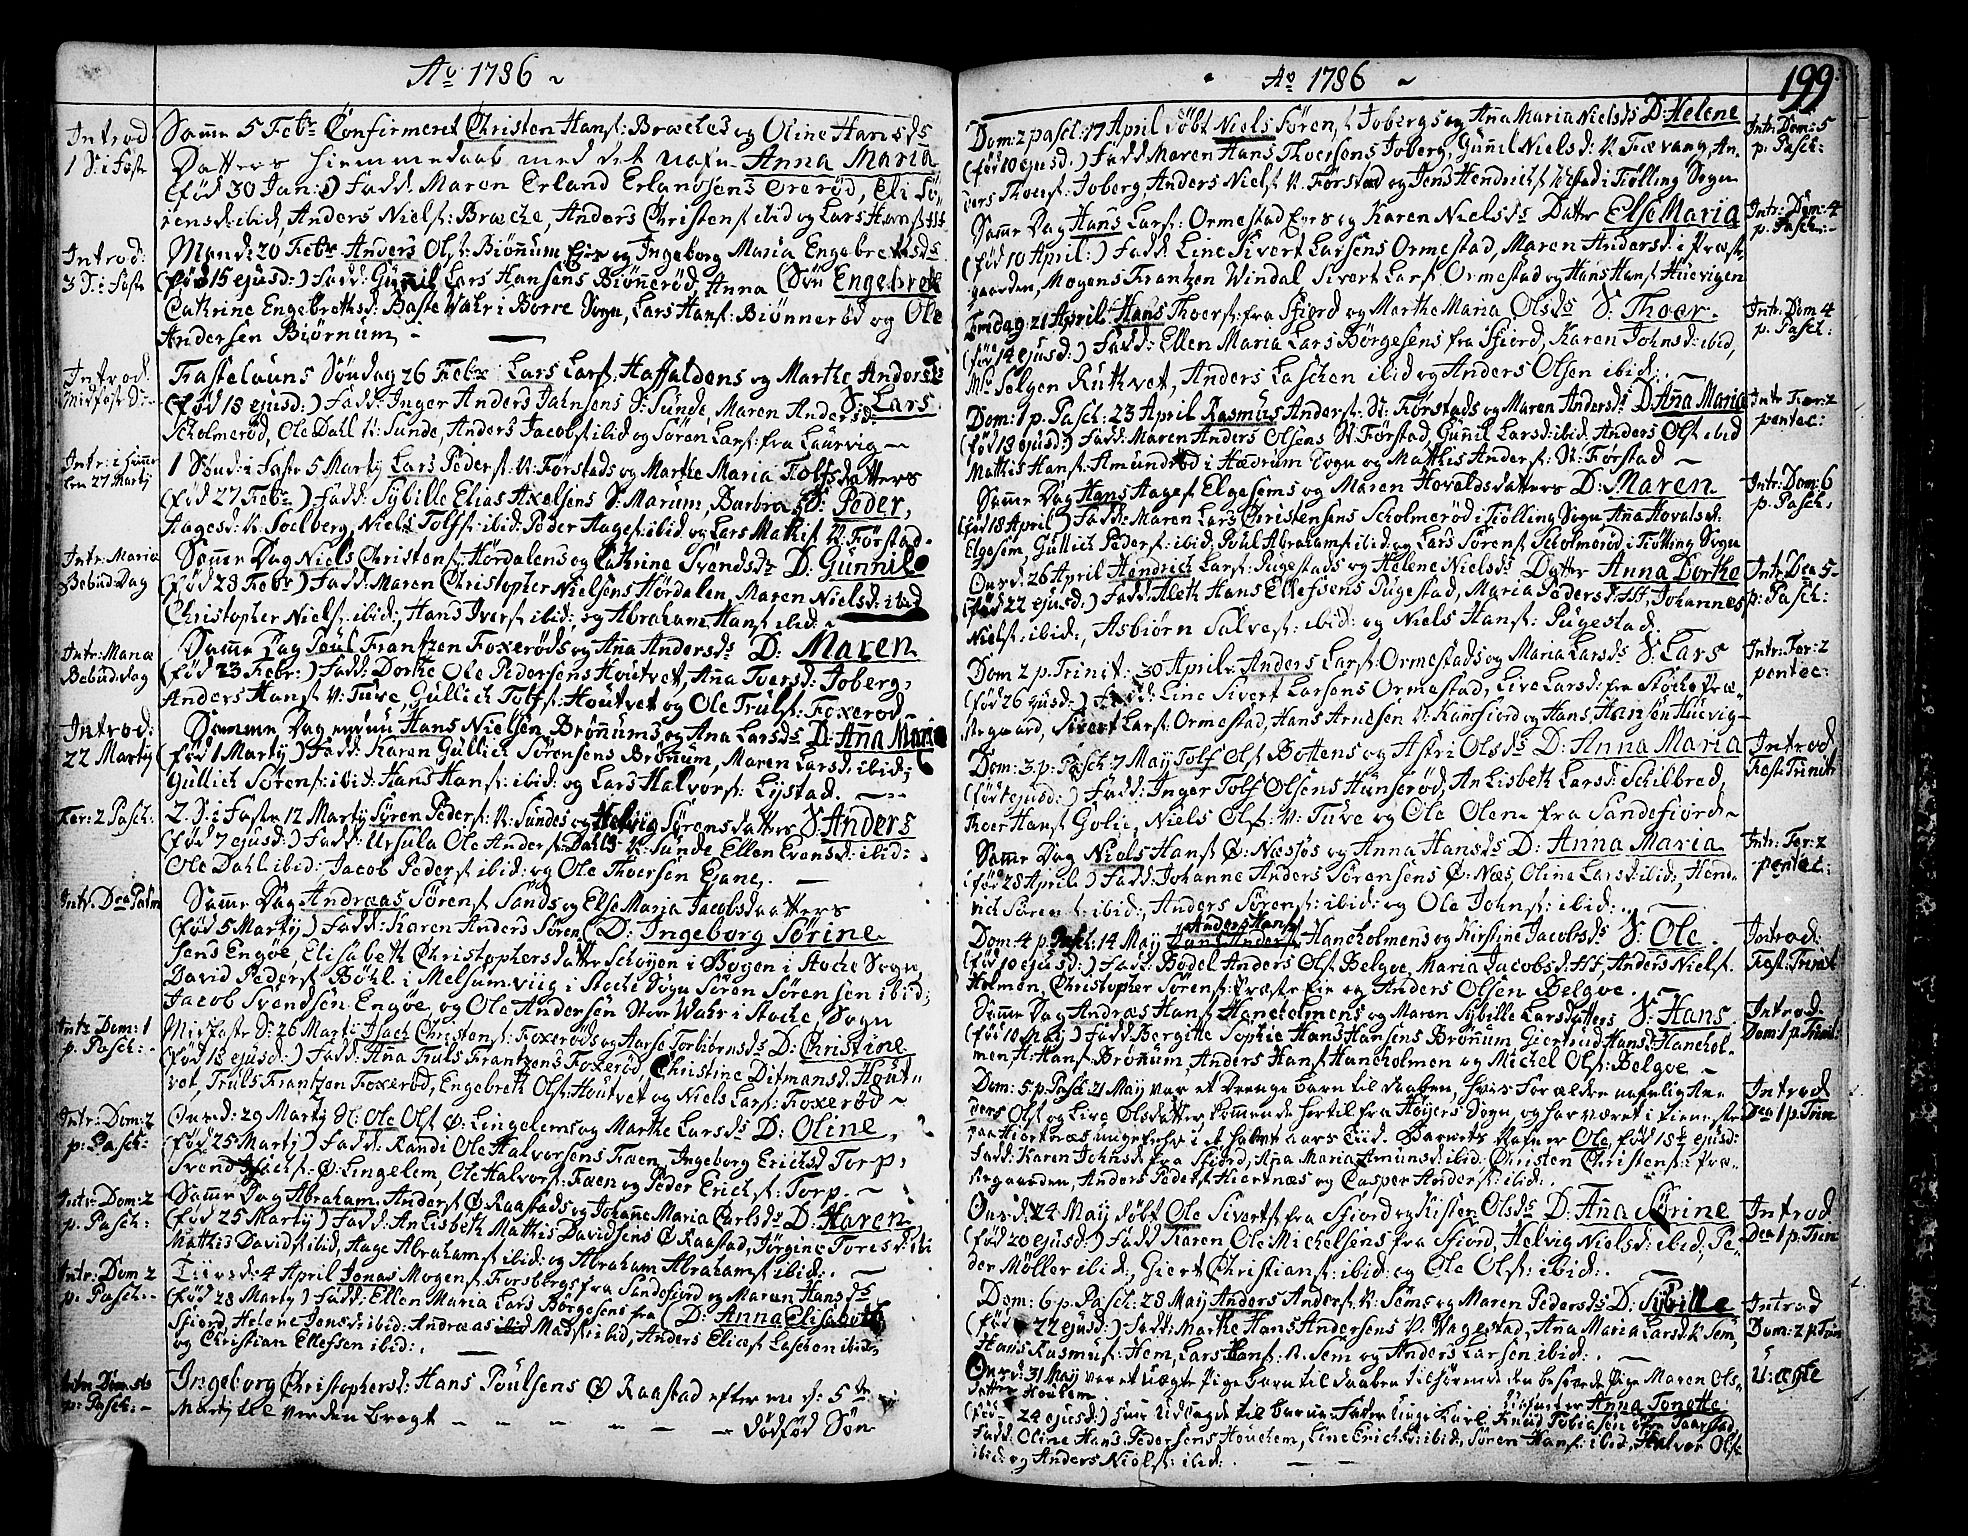 Ao 1786
Introd
1 S: i Faste
Samme 5 Febr Confirmeret Christen Hans: Bræches og Oline Hansds
Datters hiemmedaab med det nafn Anna Maria
(fød 30 Jan:) Fadd. Maren Erland Erlandsens Ørerød, Eli Sø-
rensd: ibid, Anders Niels: Bræche, Anders Christens ibid og Lars Hans
Introd:
3 S: i Faste
Mand: 20 Febr Anders Ols: Biønnum Eies og Ingeborg Maria Engebretsds
(fød 15 ejusd:) Fadd: Gunnil Lars Hansens Biønnerød, Anna (Søn Engebret
Cathrine Engebrethsd: Baste Wahr i Borre Sogn, Lars Hans: Biønnerød og Ole
Andersen Biørnum
Introd.
Midfaste S:
Fastelauns Søndag 26 Febr Lars Lars Haffaldens og Marthe Andersds
(fød 18 ejusd:) Fadd: Inger Anders Jahnsens S: Sunde, Maren Andersd: S: Lars
Scholmerød, Ole Dahl N: Sunde, Anders Jacobs ibid og Søren Lars: fra Laurvig
Intr: i
len 27 Martij
1 Sønd: i Faste 5 Martij Lars Peders: N: Førstads og Marthe Maria Tolfsdatters
(fød 27 Febr) Fadd: Sybille Elias Axelsens S: Marum, Barbra S: Peder,
Aagesd: N: Soelberg, Niels Tolfs: ibid: Peder Aages: ibid og Lars Mathis N: Førstad
Intr: Maria
Bebud: Dag
Samme Dag Niels Christens: Hørdalens og Cathrine Svendsds D: Gunnil
(fød 28 Febr) Fadd: Maren Christopher Nielsens Hørdalen, Maren Nielsd: ibid
Christopher Niels: ibid: Hans Ivers: ibid: og Abraham Hans ibid:
Intr: Mariæ
Bebud: dag
Samme Dag Poul Frantzen Foxerøds og Ana Andersds D: Maren
(fød 23 Febr:) Fadd: Dorthe Ole Pedersens Houtvet, Ana Iversd: Joberg,
Anders Hans N: Tuve, Gullich Tolfs: Houtvet og Ole Truls: Foxerød
Introd:
22 Martij
Samme Dag Hans Nielsen Brønnums og Ana Larsds D: Ana Maria
(fød 1 Martij) Fadd: Karen Gullich Sørensens Brønum, Maren Larsd: ibid;
Gullich Sørens: ibid: Hans Hans: ibid: og Lars Halvors: Lystad.
Fer: 2 Pasch:
2. S: i Faste 12 Martij Søren Peders: N: Sundes og Helvig Sørensdatters S: Anders
(fød 7 ejusd:) Fadd: Ursula Ole Anders: Dahls N: Sunde Ellen Evensd: ibid:
Ole Dahl ibid: Jacob Peders ibid: og Ole Thoersen Gane.
Intr. Dca Palm
Samme Dag Andreas Sørens Sands og Else Maria Jacobsdatters
(fød 5 Martij) Fadd: Karen Anders Søren (D: Ingeborg Sørine
sens Engøe, Elisabeth Christophersdatter Schoyen i Bogen i Stoche Sogn,
David Peders Bøhl i Melsumviig i Stoche Sogn Søren Sørensen ibid;
Jacob Svendsen Engøe, og Ole Andersen Store Wahr i Stoche Sogn
Intr Dom: 1
p. Pasch:
Midfaste S: 26 Marti: Isach Christens: Foxerøds og Aarse Torbiørnsds D: Christine
(fød 18 ejusd:) Fadd: Ana Truls Frantzens Foxerød, Christine Ditmansd. Hout-
vet, Truls Frantzen Foxerød, Engebreth Ols: Houtvet og Niels Lars: Foxerød
Intr: Dom: 2
p: Pasch:
Onsd: 29 Martij Ole Ols Ø: Lingelems og Marthe Larsds D: Oline,
(fød 25 Martij) Fadd: Randi Ole Halvorsens Fæen, Ingeborg Erichsd Torp,
Svend Isachs: Ø: Lingelem, Ole Halvors: Fæen og Peder Erichs: Torp.
Intr: Dom: 2
p. Pasch:
Samme Dag Abraham Anders Ø: Raastads og Johanne Maria Carlsds D: Haren
(fød 25 Martij) Fadd: An Lisbeth Mathis Davidsens Ø Raastad, Jørgine Toresd: ibi
Mathis Davids: ibid, Aage Abrahams: ibid: og Abraham Abrahams: ibid:
Intr: Dom 2
p. Pasch:
Tiirsd: 4 April Jonas Mogens: Forsbergs fra Sandefiord og Maren Hansds
(fød 28 Martij) Fadd: Ellen Maria Lars Børgesens fra (D: Anna Elisabeth
Sfiord, Helene Jensd: ibid: Andreas Mads: ibid, Anders Elias Laschen ibid:
og Christian Ellefsen ibid:
p: Pasch:
Ingeborg Christophersd: Hans Poulsens Ø Raastad efter en d: 5te
Martij til verden bragt - - - - dødfød Søn
Ao 1786
199
Intr: Dom: 5
p. Pasch:
Dom: 2 pasch: 17 April døbt Niels Søren, Jobergs og Ana Maria Nielsds D: Helene
(fød 10 ejusd:) Fadd Maren Hans Thoersens Joberg, Gunil Nielsd: N: Fævang, An-
ders Thoers: Joberg Anders Niels N: Førstad og Jens Hendrichs i Tiølling Sogn
Intr: Dom: 4
p. Pasch:
Samme Dag Hans Lars: Ormestad Eyes og Karen Nielsds Datter Else Maria
(fød 10 April:) Fadd Line Sivert Larsens Ormestad, Maren Andersd: i Præste-
gaarden, Mogens Frantzen Windal, Sivert Lars: Ormestad og Hans Hans Huevigen
Intr: Dom 4
p. Pasch:
Fredag 21 April Hans Thoers: fra Sfiord og Marthe Maria Olsds S: Thoer
(fød 14 ejusd:) Fadd: Ellen Maria Lars Børgesens fra Sfiord, Karen Johnsd: ibid,
Mr Selgen Ruthvet, Anders Laschen ibid og Anders Olsen ibid:
Intr Fer: 2
pentec:
Dom: 1 p. Pasch: 23 April Rasmus Anders: N: Førstads og Maren Andersds D: Ana Maria
(fød 13 ejusd:) Fadd: Maren Anders Olsens N: Førstad, Gunil Larsd: ibid. Anders Ols ibid
Mathis Hans: Amundrød i Hædrum Sogn og Mathis Anders: N: Førstad
Intr: Dom: 6
p. Pasch:
Samme Dag Hans Aages: Elgesems og Maren Hovaldsdatters D: Maren
(fød 18 April) Fadd: Maren Lars Christensens Scholmerød i Tiølling Sogn Ana Hovalsd:
Elgesem, Gullich Peders: ibid: Poul Abrahams ibid: og Lars Sørens Scholmerød i Tiølling Sogn
Intr: Dca 5
p: Pasch:
Onsd: 26 April Hendrich Lars: Pugestads og Helene Nielsds Datter Anna Dorthe
(fød 22 ejusd:) Fadd: Aleth Hans Ellefsens Pugestad, Maria Pedersd: H, Johannes
Niels: ibid:, Asbiørn Salves: ibid: og Niels Hans: Pugestad
Intr: Fer: 2
pentec:
Dom 2 p. Trinit: 30 April Anders Lars: Ormestads og Maria Larsds S: Lars
(fød 26 ejusd:) Fadd: Line Sivert Larsens Ormestad, Live Larsd: fra Stoche Præ-
stegaard, Sivert Lars: Ormestad, Hans Arnesen N: Kamfiord og Hans Hansen Huevig
Introd
Fest: Trinit
Dom: 3. p. Pasch: 7 May Tolf Ols Bottens og Astri Olsds D: Anna Maria
(fød ejusd:) Fadd: Inger Tolf Olsens Hunserød, An Lisbeth Larsd: Schilbred,
Thoer Hans Golie, Niels Ols: N: Tuve og Ole Olen fra Sandefiord
Intr: Fer: 2
pentec:
Samme Dag Niels Hans Ø: Næssøs og Anna Hansds D: Anna Maria
(fød 28 April) Fadd: Johanne Anders Sørensens Ø: Næs, Oline Larsd: ibid:, Hend-
rich Søren: ibid:, Anders Sørens: ibid: og Ole Johns: ibid:
Introd:
Fest: Trinit
Anders Hans
Dom: 4 p. Pasch: 14 May Haneholmens og Kirstine Jacobsds S: Ole
(fød 10 ejusd:) Fadd: Bodel Anders Ols: Belgve, Maria Jacobsd: H, Anders Niels.
Holmen, Christopher Sørens: Præste Eie og Anders Olsen Belgve.
Introd
Dom: 1 p. Trinit:
Samme Dag Andreas Hans Haneholmens og Maren Sybille Larsdatters S: Hans
(fød 10 May) Fadd Bergitte Sophie Hans Hansens Brønum Giertrud Hansd: Hanehol-
men H: Hans: Brønum, Anders Hans: Haneholmen og Michel Ols: Belgve
Introd
Dca 1 p: Trin
Dom: 5 p. Pasch 21 May var et Drenge barn til daaben, hvis Forældre nafnlig An-
ders Ols og Live Olsdatter kommende hertil fra Høiers Sogn, og har været i tieneste
paa Hiertnæs ungefehr i et halvt aars Tiid. Barnets Nafn er Ole, fød 15t ejusd:
Fadd: Karen Johnsd: fra Sfiord, Ana Maria Amunsd: ibid: Christen Christens: i Præ-
stegaarden, Anders Peders: Hiertnæs og Casper Anders: ibid:
Introd
Dca 1 p: Trin
Onsd. 24 May døbt Ole Siverts: fra Sfiord og Kisten Olsds D: Ana Sørine
(fød 20 ejusd:) Fadd Karen Ole Michelsens fra Sfiord, Helvig Nielsd: ibid: Pe-
der Møller ibid:, Giert Christians: ibid: og Ole Ols: ibid:
Introd
Dom: 2 p Trin
Dom: 6 p. Pasch: 28 May Anders Anders: N: Sems og Maren Pedersds D: Sybille
(fød 22 ejusd:) Fadd: Marthe Hans Andersens N Vagestad, Ana Maria Larsd: N: Sem,
Hans Rasmus: Hem, Lars Hans: N. Sem og Anders Larsen ibid:
U: ægte
Onsd: 31 May var et uægte Pige barn til daaben tilhørende den besovede Pige Maren Ols-
datter Houlem Anna Tonette
(fød 24 ejusd:) hun udlagde til barne Fader unge Karl Knud Tobiasen Øfre Gaarstad
Fadd. Oline Hans Pedersens Houchem, Line Erichsd: ibid, Søren Hans: ibid. Halvor Ols:
ibid: og Anders Niels: ibid: